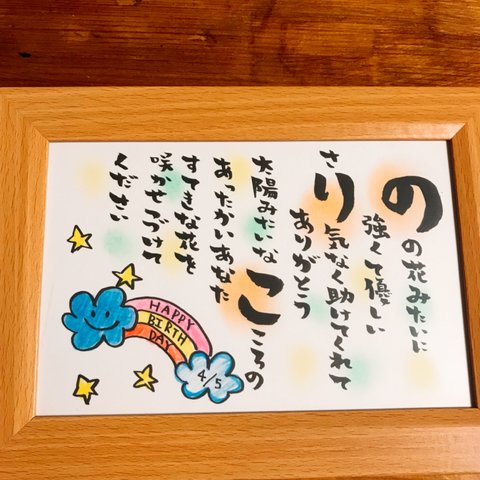 のの花みたいに
強くて優しい
さり気なく助けてくれて
ありがとう
太陽みたいなこころの
あったかいあなた
すてきな花を
咲かせつづけて
ください
HAPPY
BIRTH
DAY
4/5